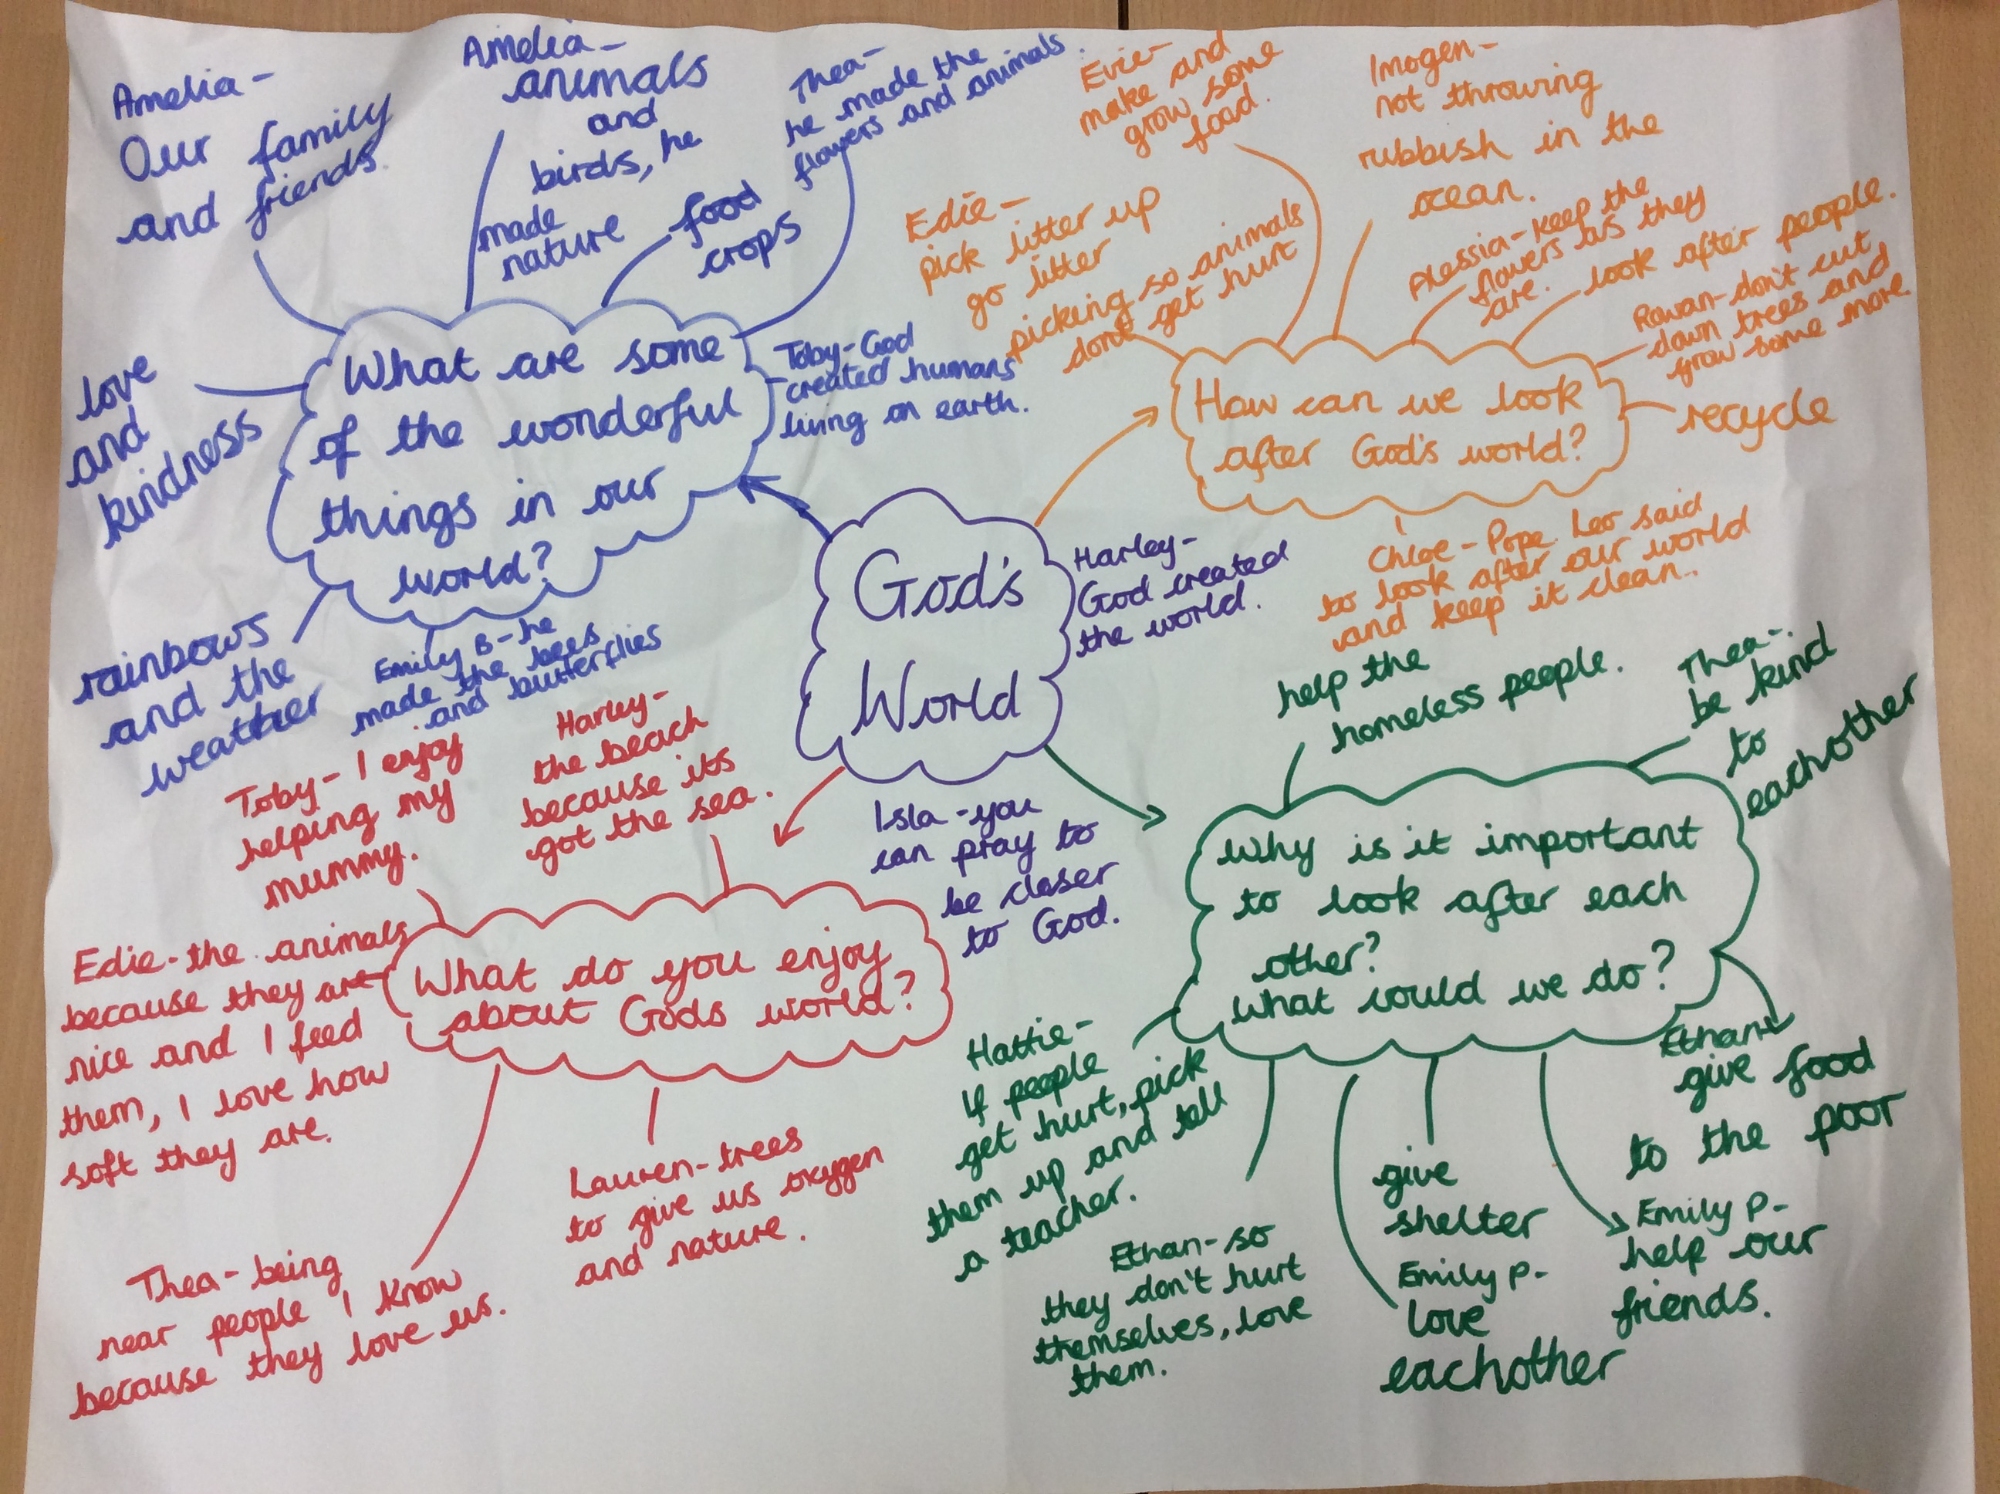 Amelia-
Our family
and friends.
Amelia-
animals
and
birds, he
made
nature
food
crops
Thea-
he made the
flowers and animals.
love
and
kindness
What are some
of the wonderful
things in our
world?
Toby-God
created humans
living on earth.
rainbows
and the
weather
Emily B-he
made the bees
and butterflies
Evie-
make and
grow some
food.
Imogen-
not throwing
rubbish in the
ocean.
Edie-
pick litter up
go litter
picking so animals
don't get hurt
Alessia-keep the
flowers as they
are.
look after people.
Rowan-don't cut
down trees and
grow some more
recycle
How can we look
after God's world?
Chloe-Pope Leo said
to look after our world
and keep it clean..
God's
World
Harley-
God created
the world.
Isla-you
can pray to
be closer
to God.
Toby-I enjoy
helping my
mummy.
Harley-
the beach
because its
got the sea.
Edie-the animals
because they are
nice and I feed
them, I love how
soft they are.
What do you enjoy
about Gods world?
Thea-being
near people I know
because they love us.
Lauren-trees
to give us oxygen
and nature.
help the
homeless people.
Thea-
be kind
to
eachother
Why is it important
to look after each
other?
What could we do?
Hattie-
If people
get hurt, pick
them up and tell
a teacher.
Ethan-so
they don't hurt
themselves, love
them.
give
shelter
Emily P-
love
eachother
Ethan-
give food
to the poor
Emily P-
help our
friends.